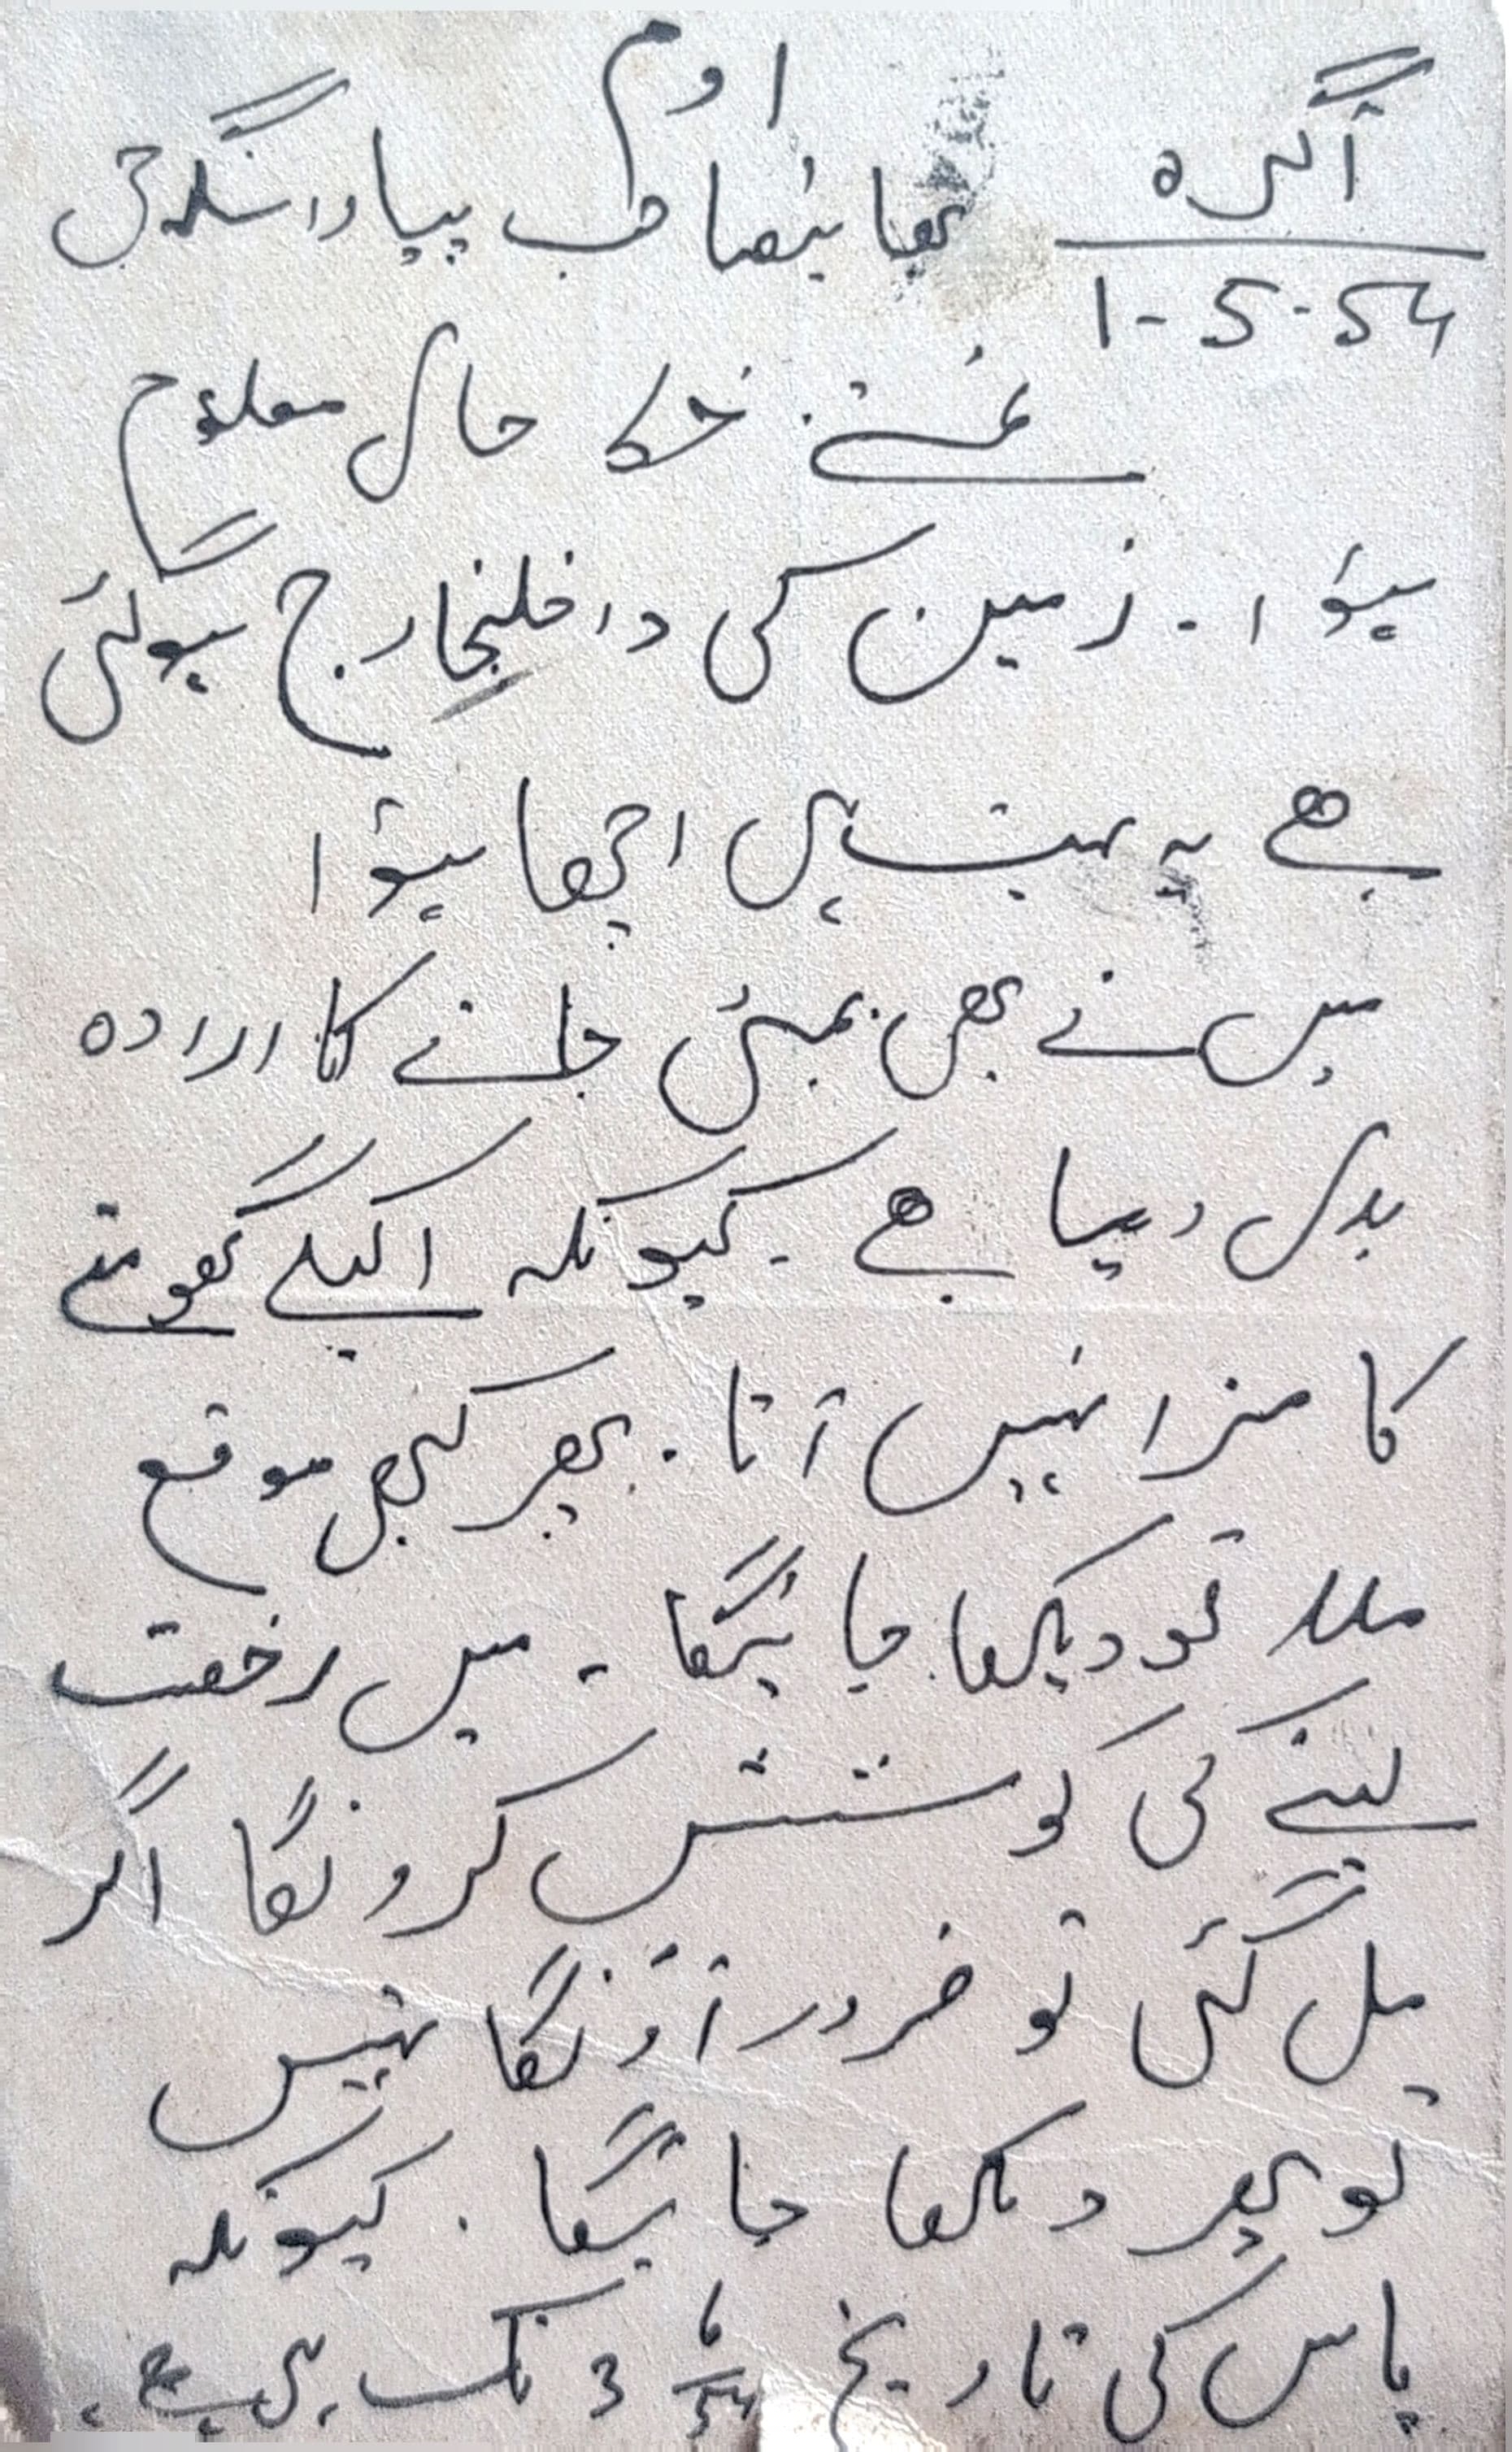 اوم
آگرہ
1-5-54
بھائیصاحب پیاراسنگھ جی
نمستے۔ خط کا حال معلوم
ہؤا۔ زمین کی داخلخارج ہوگئی
ہے یہ بہت ہی اچھا ہؤا
میں نے بھی بمبئی جانے کا ارادہ
بدل دیا ہے۔ کیونکہ اکیلے گھومنے
کا مزا نہیں آتا۔ پھر کبھی موقع
ملا تو دیکھا جائیگا۔ میں رخصت
لینے کی کوشش کرونگا اگر
مل گئی تو ضرور آؤنگا نہیں
تو پھر دیکھا جائیگا۔ کیونکہ
پاس کی تاریخ 3 6/54 تک ہی ہے۔